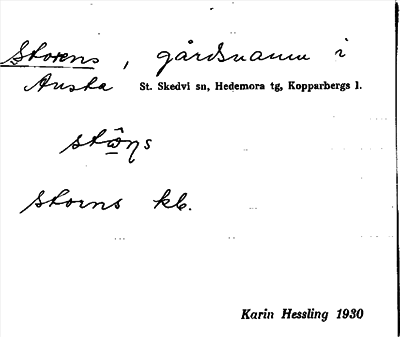 Storens, gårdsnamn i
Anska St. Skedvi sn, Hedemora tg, Kopparbergs l.
storns kb.
Karin Hessling 1930